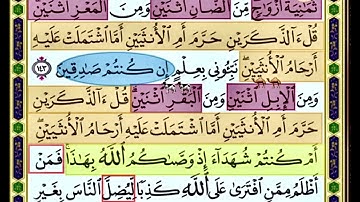 ثَمَٰنِيَةَ أَزْوَٰجٍ مِّنَ ٱلضَّأْنِ ٱثْنَيْنِ وَمِنَ ٱلْمَعْزِ ٱثْنَيْنِ
قُلْ ءَآلذَّكَرَيْنِ حَرَّمَ أَمِ ٱلْأُنثَيَيْنِ أَمَّا ٱشْتَمَلَتْ عَلَيْهِ
أَرْحَامُ ٱلْأُنثَيَيْنِ نَبِّـُٔونِى بِعِلْمٍ إِن كُنتُمْ صَٰدِقِينَ ١٤٣
وَمِنَ ٱلْإِبِلِ ٱثْنَيْنِ وَمِنَ ٱلْبَقَرِ ٱثْنَيْنِ قُلْ ءَآلذَّكَرَيْنِ
حَرَّمَ أَمِ ٱلْأُنثَيَيْنِ أَمَّا ٱشْتَمَلَتْ عَلَيْهِ أَرْحَامُ ٱلْأُنثَيَيْنِ
أَمْ كُنتُمْ شُهَدَآءَ إِذْ وَصَّىٰكُمُ ٱللَّهُ بِهَٰذَا فَمَنْ
أَظْلَمُ مِمَّنِ ٱفْتَرَىٰ عَلَى ٱللَّهِ كَذِبًا لِّيُضِلَّ ٱلنَّاسَ بِغَيْرِ